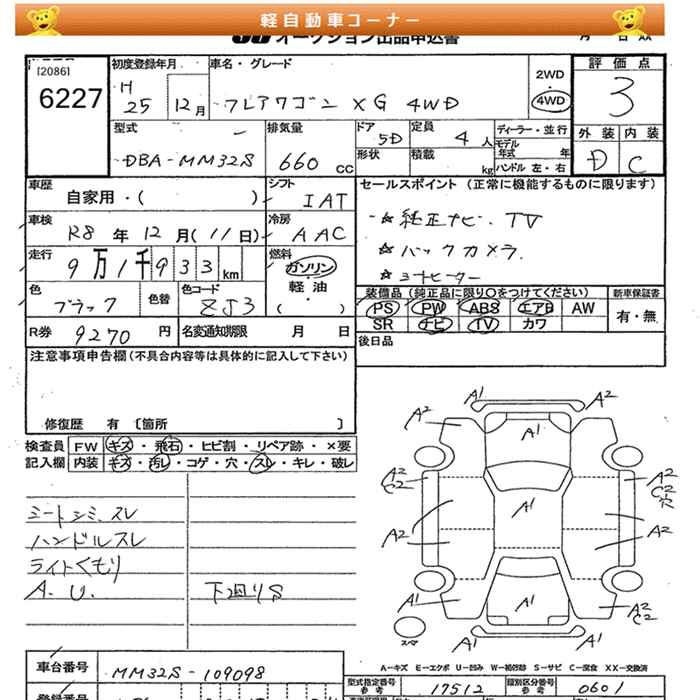 軽自動車コーナー
オークション出品申込書
月 日 AA
[2086]
6227
初度登録年月
H 25 12月
車名・グレード
フレアワゴン XG 4WD
2WD
4WD
評価点
3
外装 内装
D C
型式
DBA-MM32S
排気量
660 CC
ドア
5D
形状
定員
4人
積載
kg
ディーラー・並行
モデル年式 年
ハンドル 左・右
車歴
自家用・( )
シフト
IAT
セールスポイント (正常に機能するものに限ります)
☆純正ナビ. TV
☆バックカメラ.
☆シートヒーター
車検
R8年12月(11日)
冷房
AAC
走行
9万1千933km
燃料
ガソリン
軽油
( ・ )
色
ブラック
色替
色コード
ZJ3
装備品(純正品に限り〇をつけてください)
新車保証書
PS PW ABS エアB AW
SR ナビ TV カワ
有・無
R券
9270円
名変通知期限 月 日
後日品
注意事項申告欄(不具合内容等は具体的に記入して下さい)
修復歴 有 〔箇所 〕
検査員記入欄
FW キズ・飛石・ヒビ割・リペア跡・×要
内装 キズ・汚レ・コゲ・穴・スレ・キレ・破レ
シートシミ.スレ
ハンドルスレ
ライトくもり
A. U.
下廻りS
A1 A2
A2 A1
A2 C2 A2 C2 穴
A2 A1 A2
A1 A1 A2 C2
スペア
A1 A1
A-キズ E-エクボ U-凹み W-補修跡 S-サビ C-腐食 XX-交換済
車台番号
MM32S-109098
型式指定番号 参考
17512
類別区分番号 参考
0601
登録番号